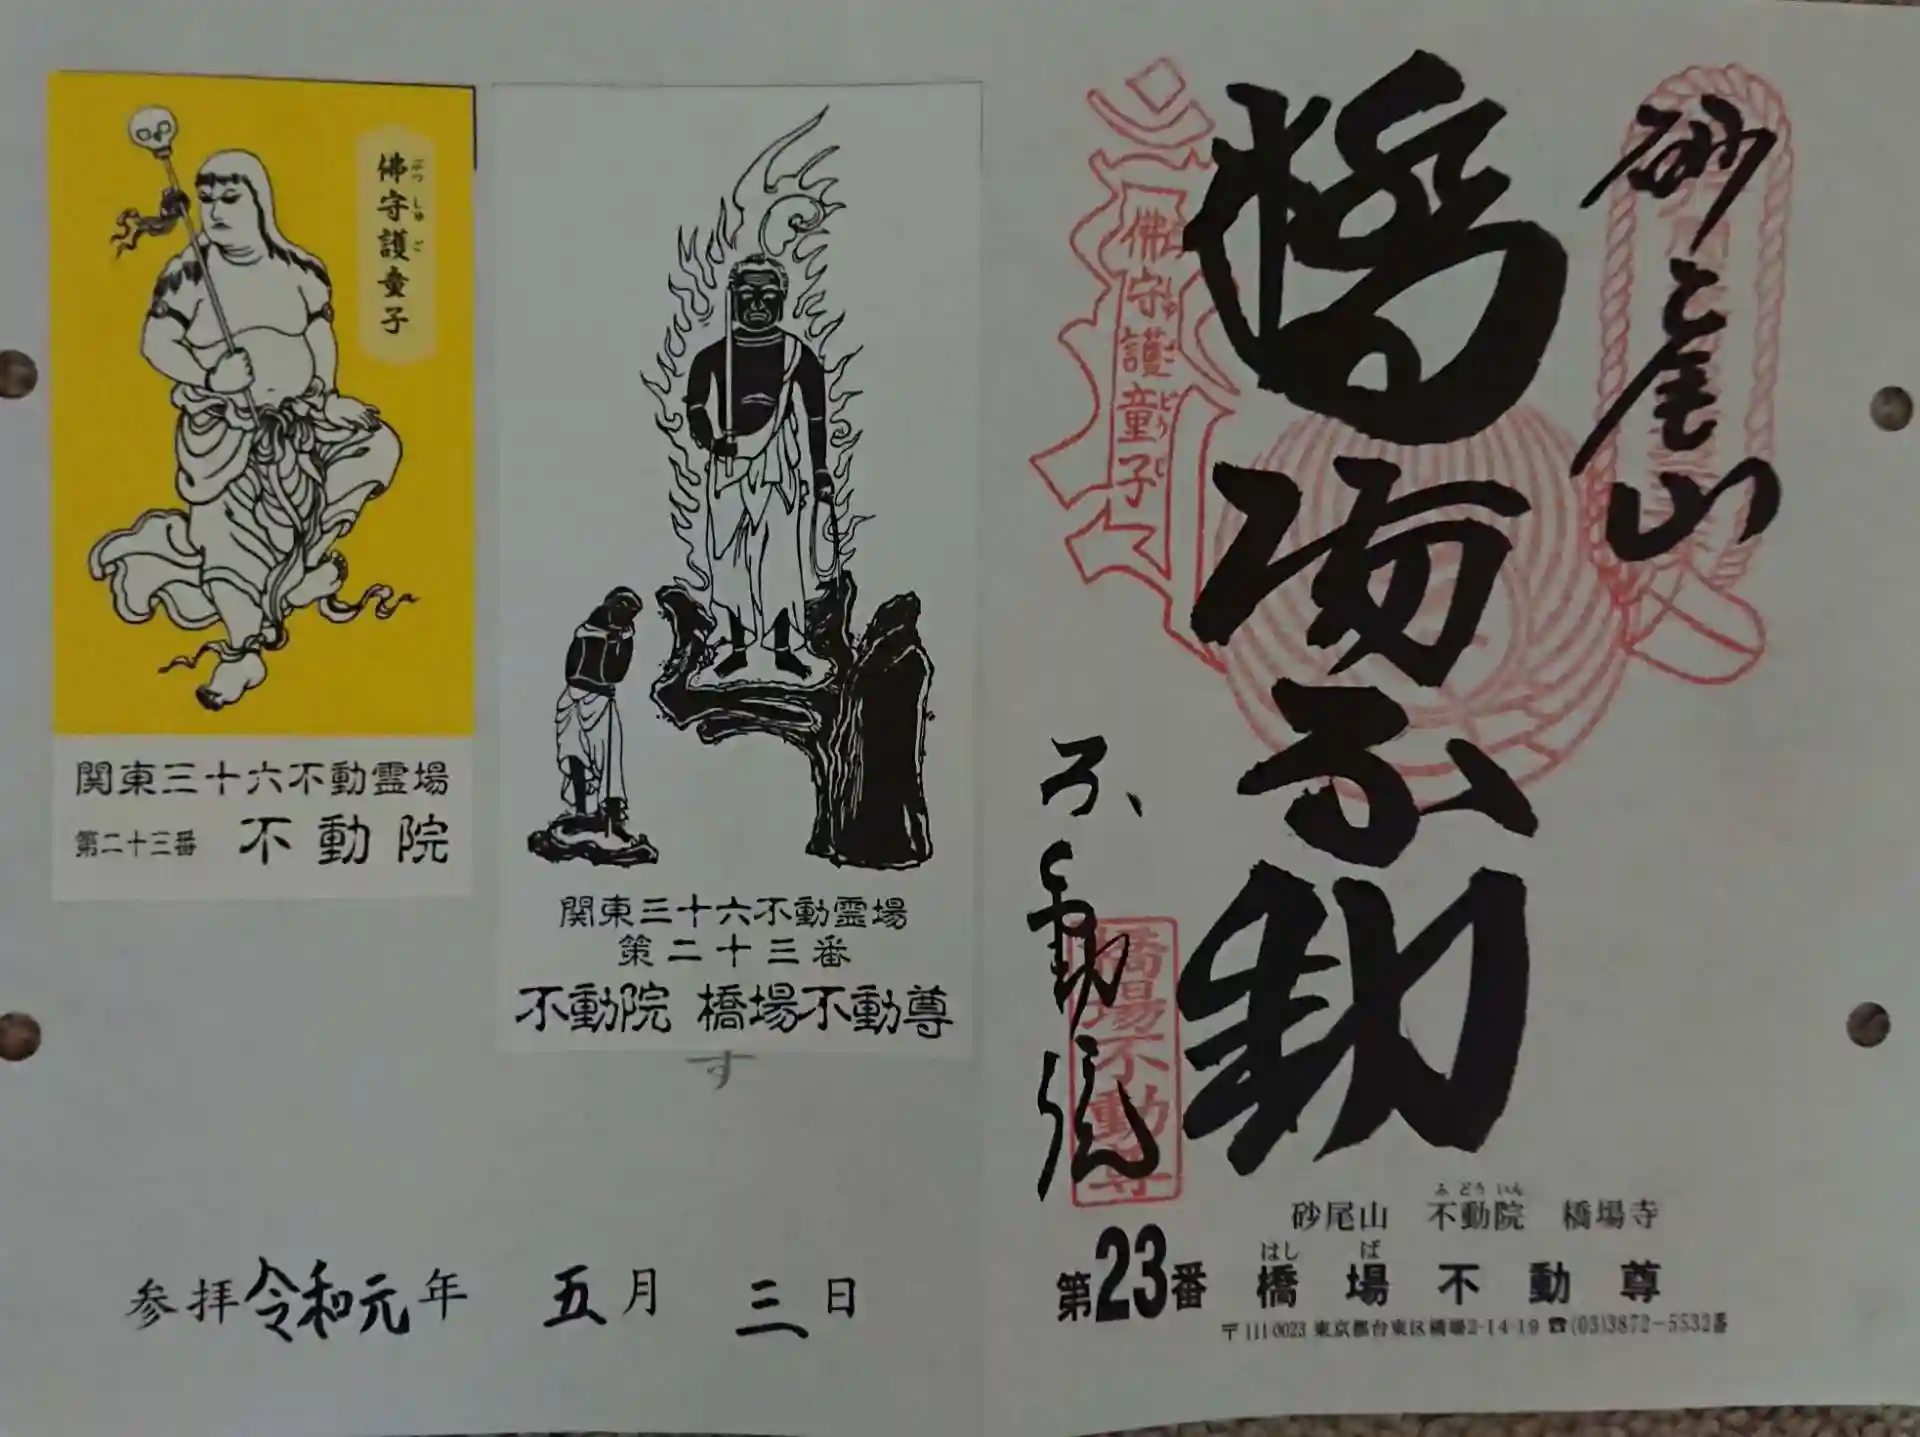 佛守護童子
ぶっしゅご
関東三十六不動霊場
第二十三番 不動院
関東三十六不動霊場
第二十三番
不動院 橋場不動尊
す
参拝令和元年 五月 三日
砂尾山
橋場不動
佛守護童子
不動院
橋場不動尊
ふどういん
砂尾山 不動院 橋場寺
はしば
第23番 橋場不動尊
〒111-0023 東京都台東区橋場2-14-19 ☎(03)3872-5532番